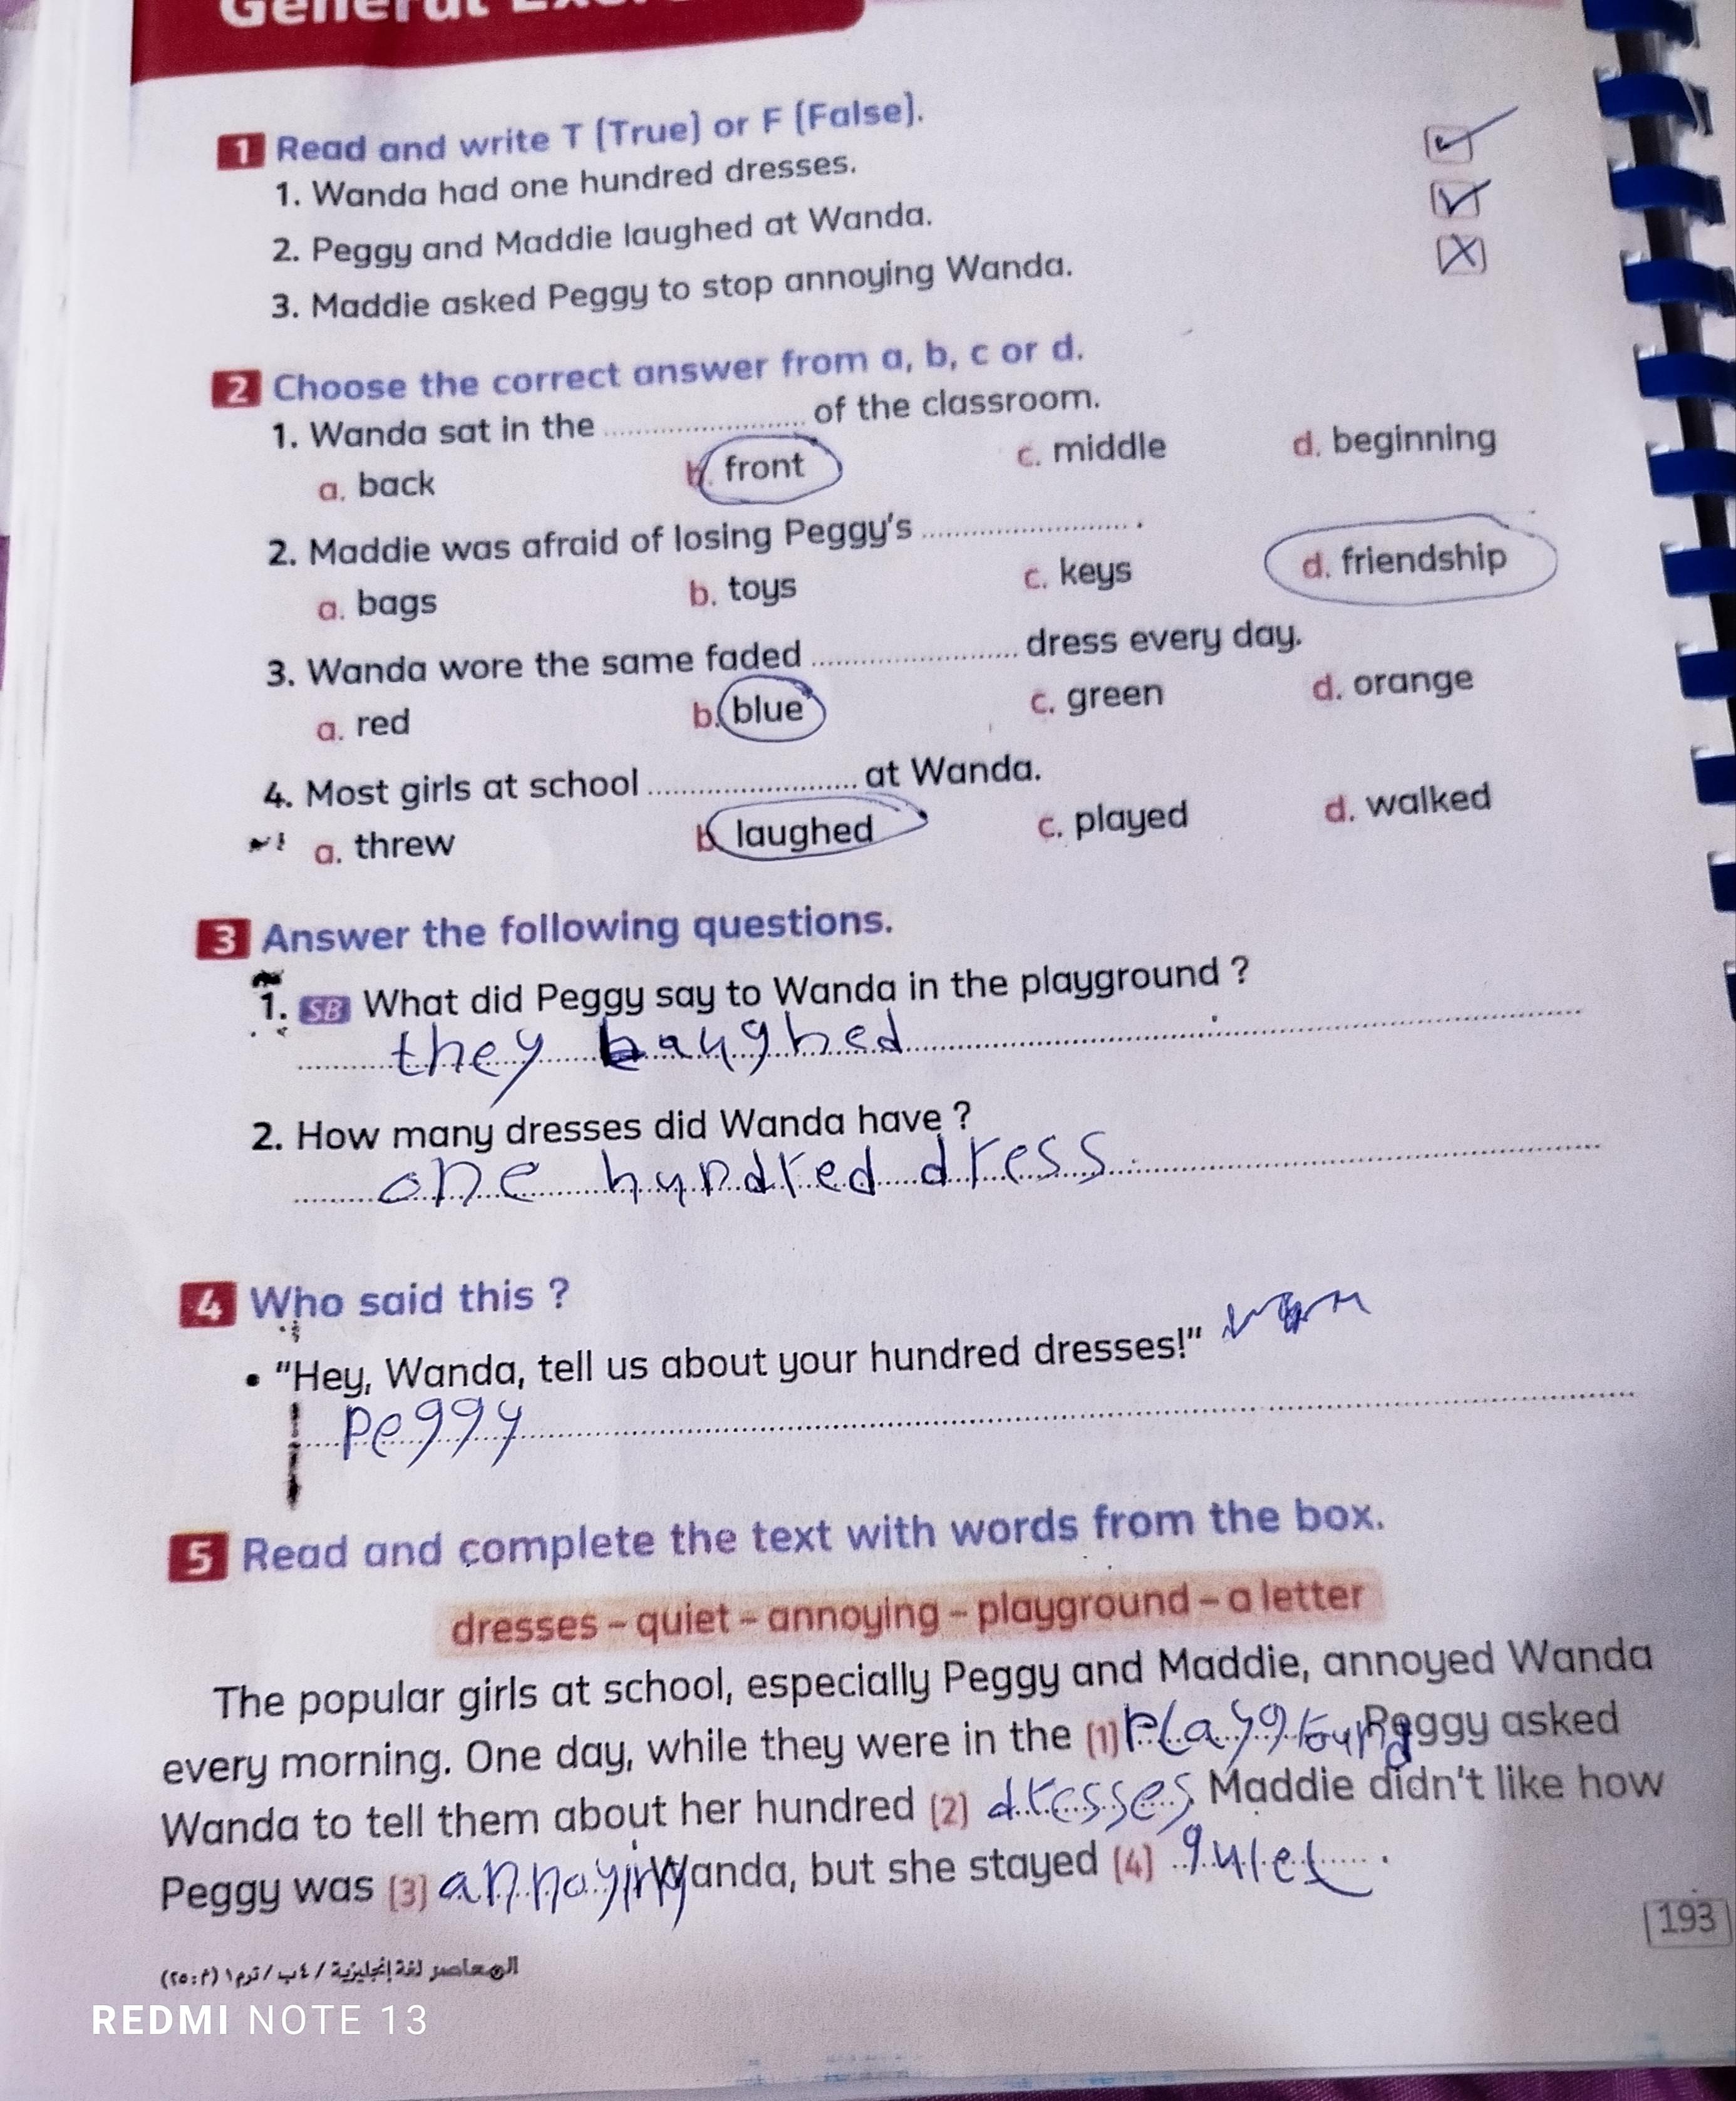 General
1 Read and write T (True) or F (False).
1. Wanda had one hundred dresses. ✓
2. Peggy and Maddie laughed at Wanda. ✓
3. Maddie asked Peggy to stop annoying Wanda. X
2 Choose the correct answer from a, b, c or d.
1. Wanda sat in the .................... of the classroom.
a. back b. front c. middle d. beginning
2. Maddie was afraid of losing Peggy's .................... .
a. bags b. toys c. keys d. friendship
3. Wanda wore the same faded .................... dress every day.
a. red b. blue c. green d. orange
4. Most girls at school .................... at Wanda.
a. threw b laughed c. played d. walked
3 Answer the following questions.
1. SB What did Peggy say to Wanda in the playground ?
they laughed
2. How many dresses did Wanda have ?
one hundred dress
4 Who said this ?
• "Hey, Wanda, tell us about your hundred dresses!"
Peggy
5 Read and complete the text with words from the box.
dresses – quiet – annoying – playground – a letter
The popular girls at school, especially Peggy and Maddie, annoyed Wanda
every morning. One day, while they were in the (1) Playground Peggy asked
Wanda to tell them about her hundred (2) dresses. Maddie didn't like how
Peggy was (3) annoying Wanda, but she stayed (4) quiet .
193
المعاصر لغة إنجليزية / ٤ب / ترم١ (م: ٢٥)
REDMI NOTE 13